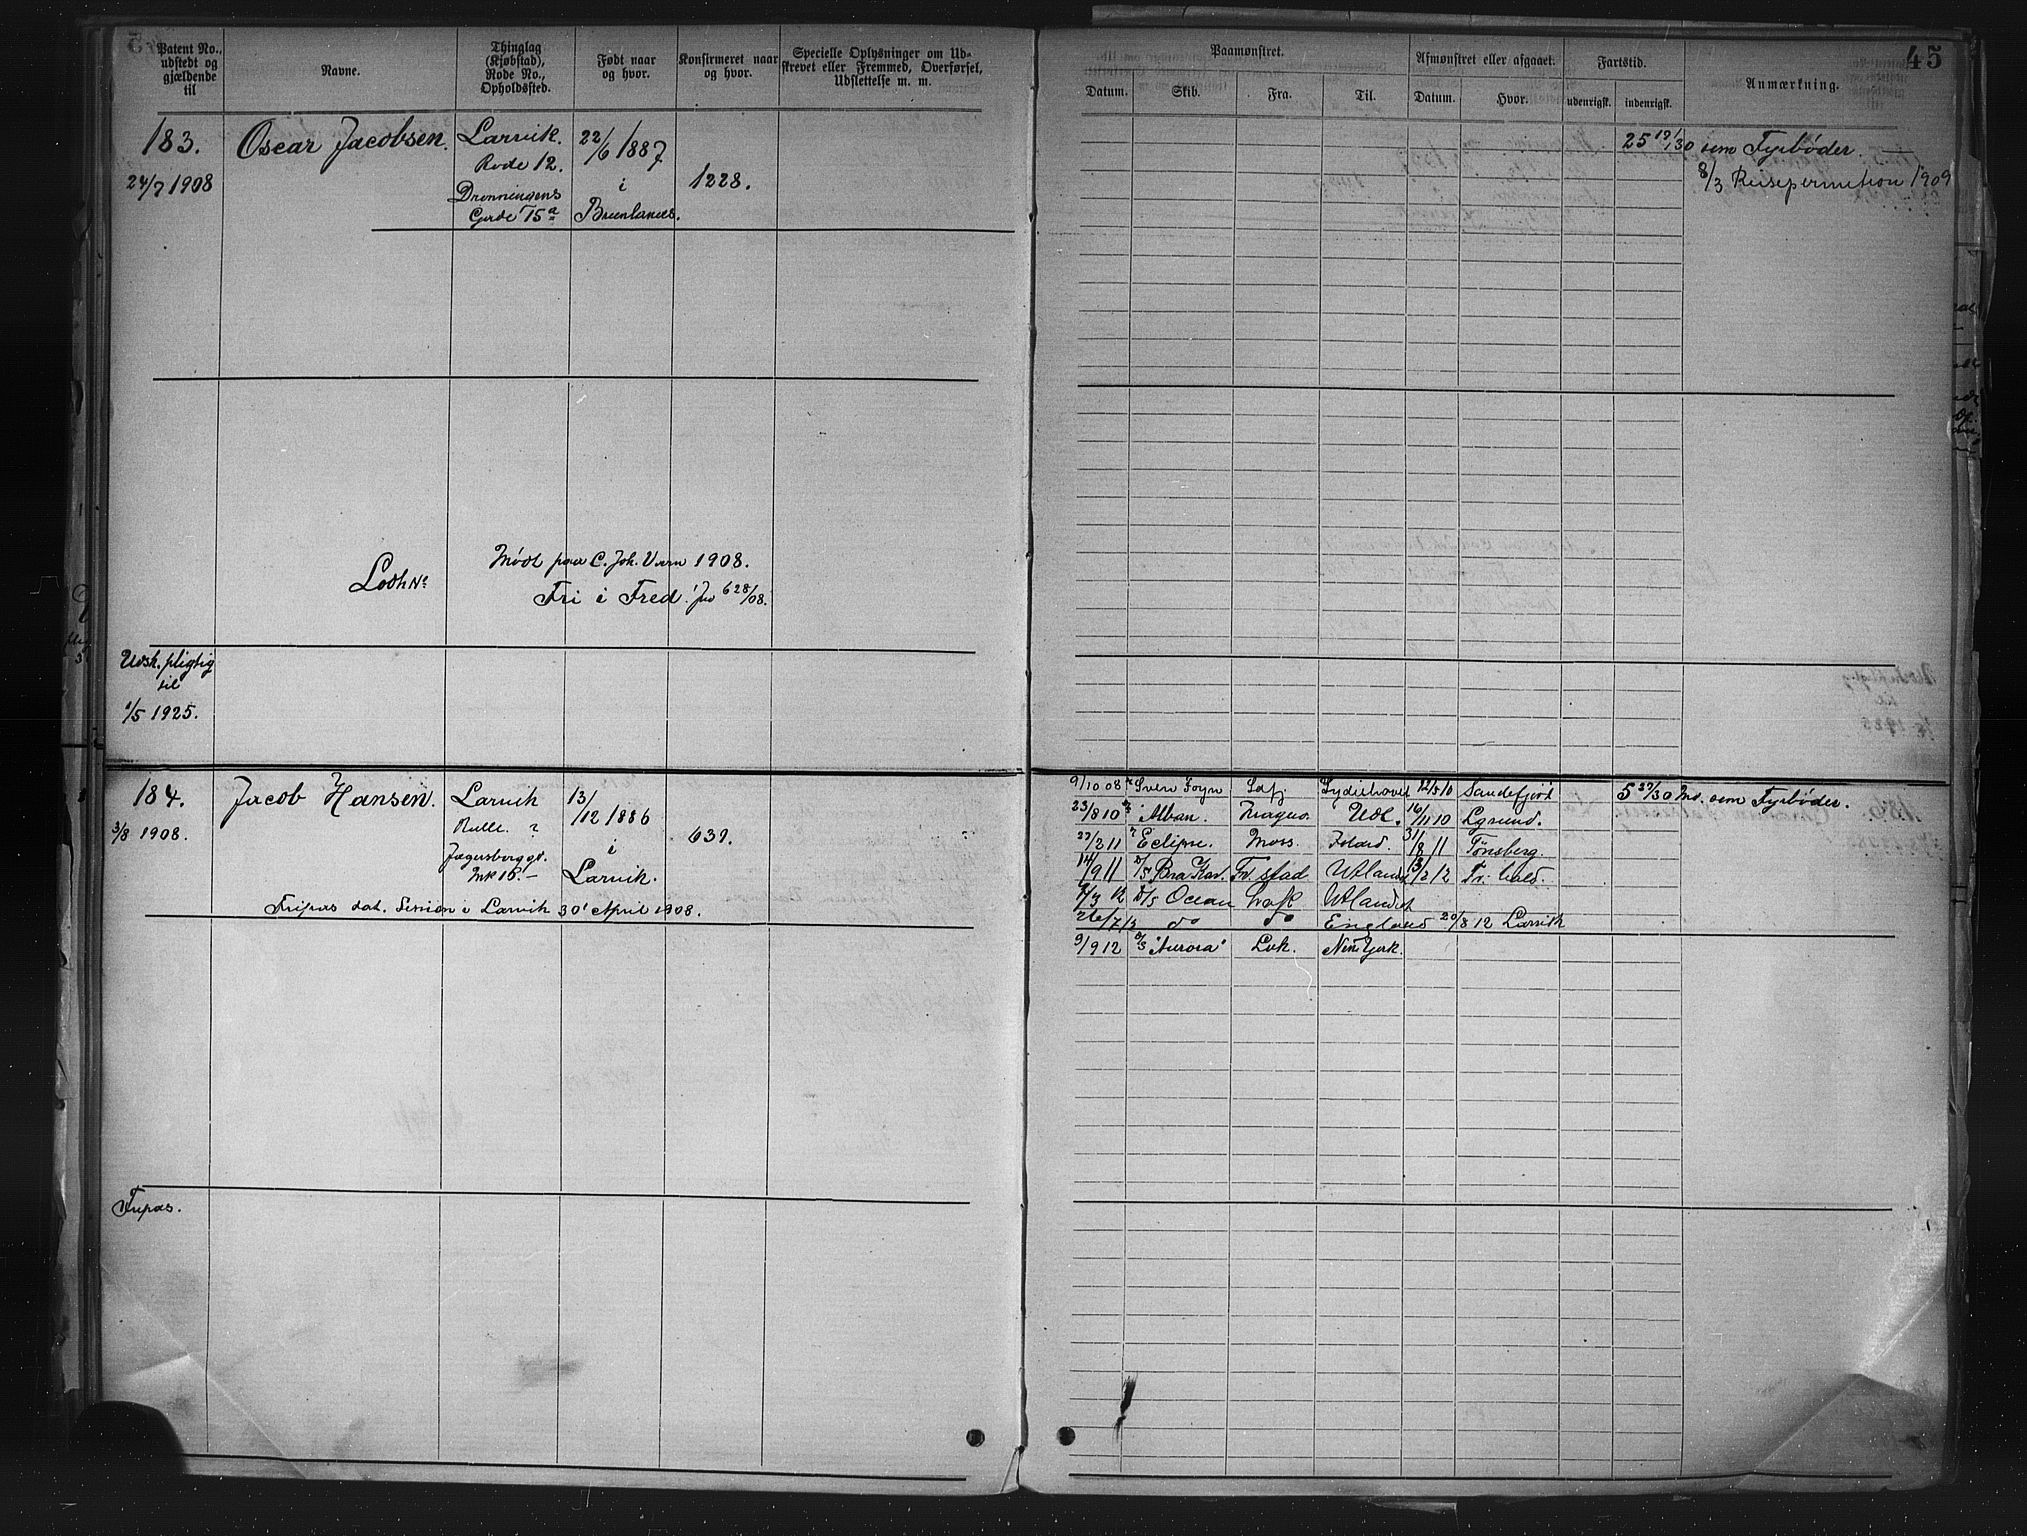 Patent No., udstedt og gjældende til
Navne.
Thinglag (Kjøbstad), Rode No., Opholdssted.
Født naar og hvor.
Konfirmeret naar og hvor.
Specielle Oplysninger om Udskrevet eller Fremmed, Overførsel, Udslettelse m. m.
Paamønstret.
Datum.
Skib.
Fra.
Til.
Afmønstret eller afgaaet.
Datum.
Hvor.
Fartstid.
udenrigsk.
indenrigsk.
Anmærkning.
45
183.
24/7 1908
Oscar Jacobsen.
Larvik.
Rode 12.
Dronningens
Gade 15a
22/6 1887
i
Brunlanes.
1228.
25 19/30 som Fyrbøder.
8/3 Reisepermition 1909
Lodh No
Mødt paa C. Joh. Værn 1908.
Fri i Fred
Udsk. pligtig
til
1/5 1925.
184.
3/8 1908.
Jacob Hansen.
Larvik
Rulle. ?
Jægersborggd.
Mk 16.—
13/12 1886
i
Larvik.
639.
Fripas dat. Session i Larvik 30' April 1908.
9/10 08 Sven Foyn Safj Sydishavet 12/5 10 Sandefjord 5 27/30 Md. som Fyrbøder.
23/8 10 Alban. Kragerø. Udl. 16/11 10
27/2 11 Eclipse. Moss. Island. 31/8 11 Tønsberg.
14/9 11 D/S Fr. stad Utlandet
D/S Ocean Utlandet
26/7 12 do do England 20/8 12 Larvik
9/9 12 D/S "Aurora" Lvk. New York.
Fripas.